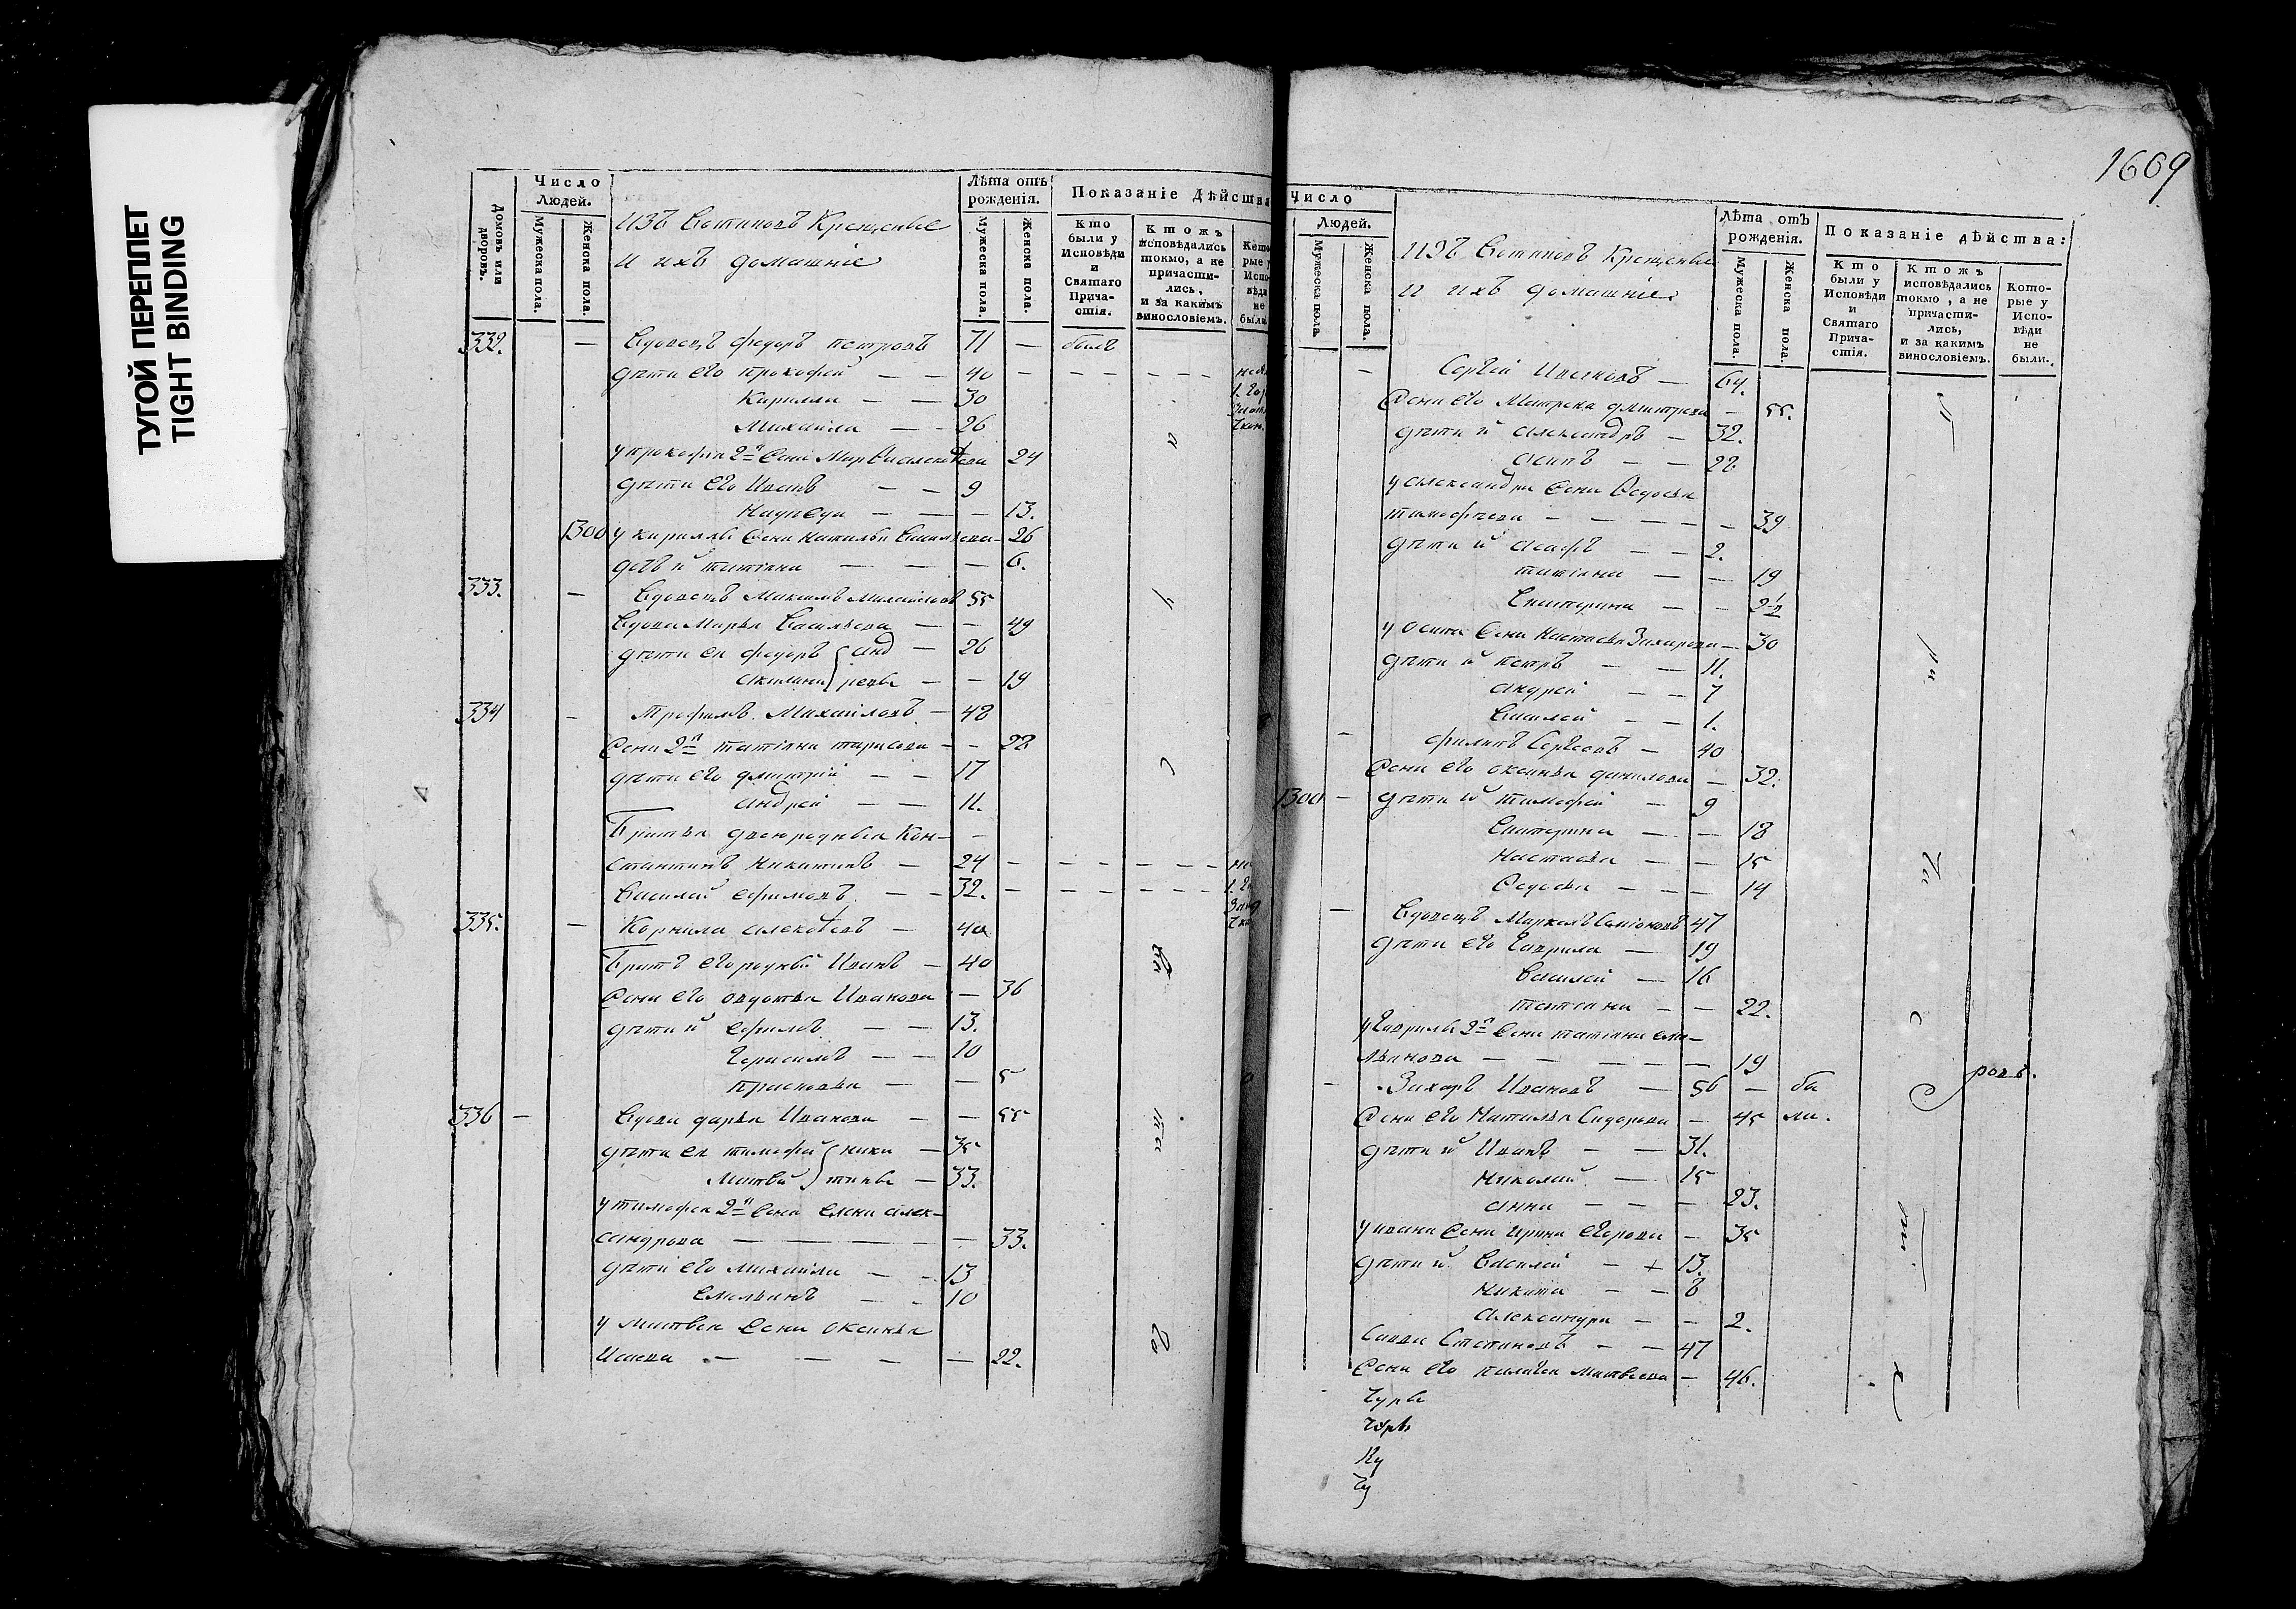 ТУГОЙ ПЕРЕПЛЕТ
TIGHT BINDING
Домовъ или дворовъ.
Число Людей.
Мужеска пола.
Женска пола.
изъ Вотяковъ Крещеные
и ихъ домашніе
Лѣта отъ рожденія.
Мужеска пола.
Женска пола.
Показаніе Дѣйства
Кто были у Исповѣди и Святаго Прича-стія.
Кто жъ исповѣдались токмо, а не причасти-лись, и за какимъ винословіемъ.
Кото рые у Испо вѣди не были
332. — Вдовецъ Федоръ Петровъ 71 — былъ
дѣти его Прокофей — — 40 — — — — — —
Кирилла — — 30
Михаила — — 26
у Прокофья 2й жена Марья Алексѣева 24
дѣти его Иванъ — — 9
— — — 13.
1300 у Кириллы жена Наталья Васильева — 26
дочь и Татіана — — — 6.
333. — Вдовецъ Максимъ Михайловъ 55
Вдова Марья Васильева — — 49
дѣти ея Федоръ анд — 26
Акилина реевы — — 19
334 — Трофимъ Михайловъ — 48
жена 2я Татіана Тарасова — — 28
дѣти его Дмитрій — — 17
Андрей — — 11.
Братья двоюродныя Кон— —
стантинъ Никитинъ — 24 — — — — — —
Василей Ефимовъ — — 32. — — — — — —
335. — Корнила Алексѣевъ — 40
Братъ его родный Иванъ — 40
жена его Авдотья Иванова — 36
дѣти и Ефимъ — — 13.
Герасимъ — — 10
Прасковья — — 5
336 — Вдова Дарья Иванова — — 55
дѣти ея Тимофей ники — 35
Матвѣй тины — 33.
у Тимофея 2й жена Елена Алек—
сандрова — — — — — 33.
дѣти его Михаила — — 13
Емельянъ — — 10
у Матвея жена Оксинья
Исаева — — — — 22.
1669
Число Людей.
Мужеска пола
Женска пола.
изъ Вотяковъ Крещеные
и ихъ домашніе:
Лѣта отъ рожденія.
Мужеска пола.
Женска пола.
Показаніе дѣйства:
Кто были у Исповѣди и Святаго Прича-стія.
Кто жъ исповѣдались токмо, а не причасти-лись, и за какимъ винословіемъ.
Кото-рые у Испо-вѣди не были.
— Сергѣй Ивановъ — 64.
жена его Матрена Дмитрева — 55.
дѣти и Александръ — 32.
Осипъ — — 28
у Александра жена Федосья
Тимофѣева — — — — — 39
дѣти и Агафъ — — 2.
Татіана — — 19
Екатерина — — 2½
у Осипа жена Настасья Захарова — 30
дѣти и Петръ — — 11.
Андрей — — 7
Василей — — 1.
— Филипъ Сергѣевъ — 40
жена его Оксинья Данилова — 32.
1300 — дѣти и Тимофей — 9
Екатерина — — 18
Настасья — — 15
Федосья — — — 14
— Вдовецъ Маркелъ Семіоновъ 47
дѣти его Гаврила — 19
Василей — 16
Татіана — — 22.
у Гаврилы 2я жена Татіана Еме—
льянова — — — — — 19
— Захаръ Ивановъ — 56 — бы
жена его Наталья Сидорова — 45 ли.
дѣти и Иванъ — — 31.
Николай — 15
Анна — — — 23.
у Ивана жена Ирина Егорова — 35
дѣти и Василей — + 13.
Никита — — 8
Александра — — 2.
Савва Степановъ — — 47
жена его Пелагея Матвеева — 46.